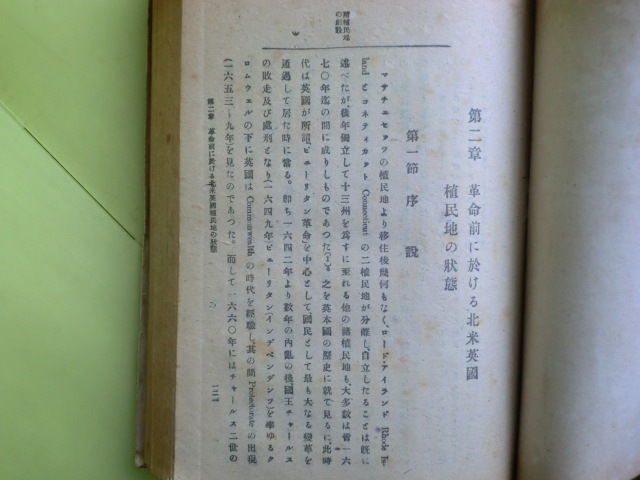 第二章 革命前に於ける北米英國
植民地の狀態
第一節 序說
マサチユセッツの植民地より移住後幾何もなく、ロード・アイランド Rhode Is-
land とコネティカット Connecticut の二植民地が分離し、自立したることは旣に
述べたが、後年獨立して十三州を爲すに至れる他の諸植民地も、大多數は皆一六
七〇年迄の間に成りしものであつた(1)。之を英本國の歷史に就て見るに、此時
代は英國が所謂「ピューリタン革命」を中心として、國民として最も大なる變革を
通過して居た時に當る。卽ち一六四二年より數年の內亂の後國王チャールス
の敗走及び處刑となり(一六四九年)ピューリタン(インデペンデンツ)を率ゆるク
ロムウェルの下に英國は Commonwealth の時代を經驗し、其の間 Protectorate の出現
(一六五三—九年)を見たのであつた。而して一六六〇年にはチャールス二世の
諸植民地
の創設
第二章 革命前に於ける北米英國植民地の狀態